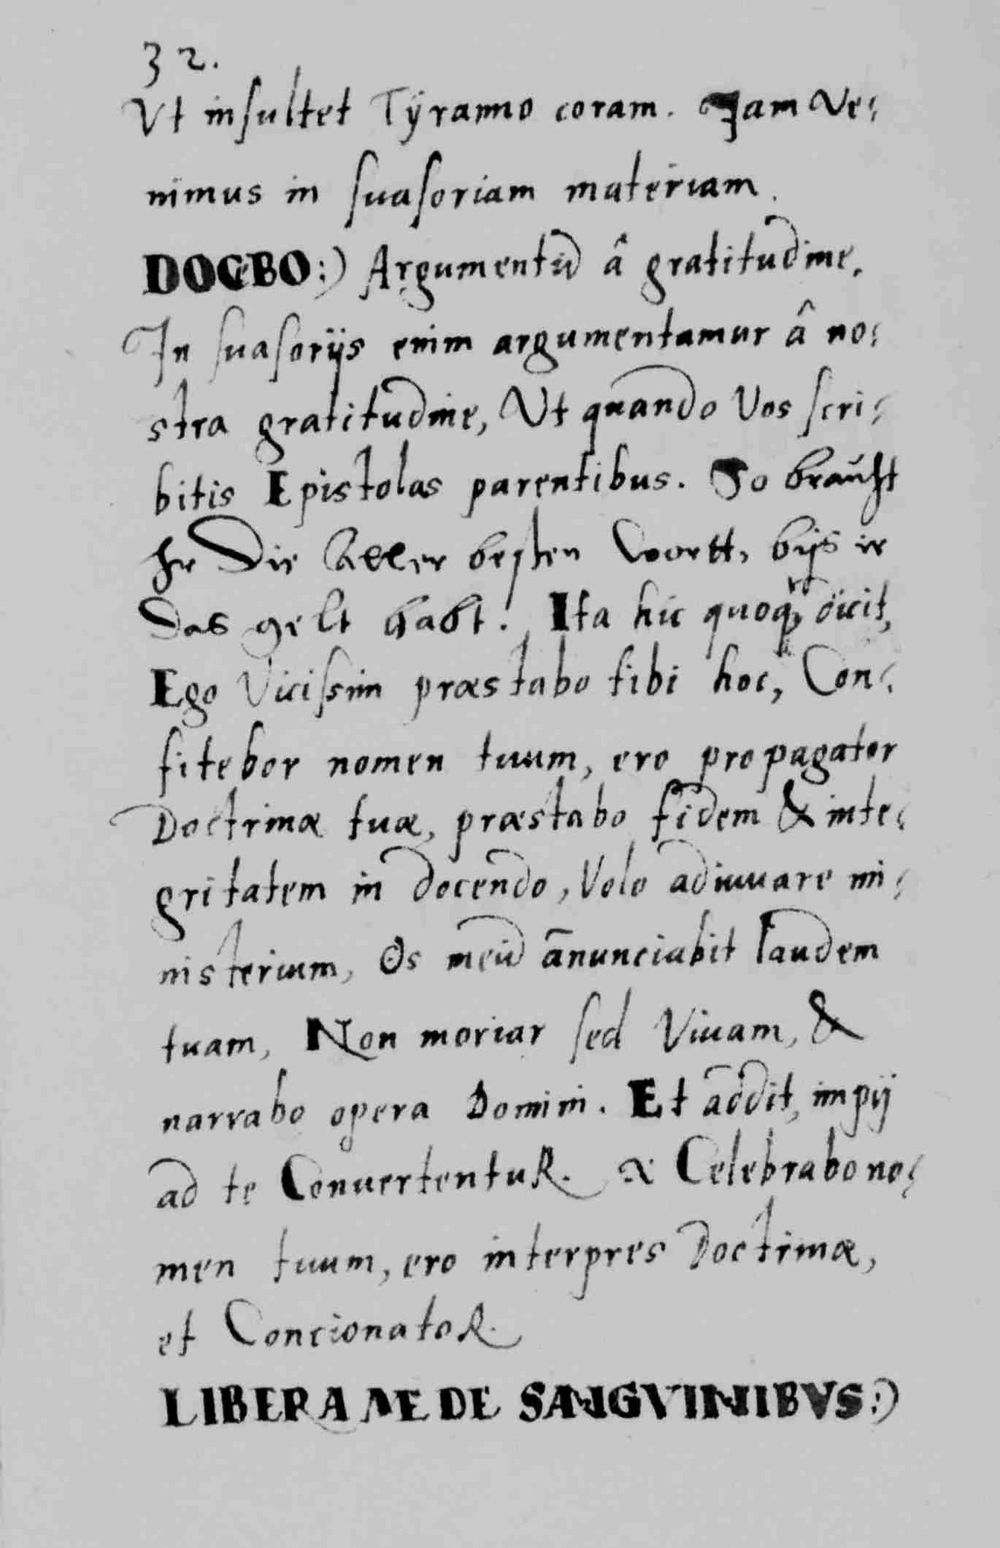 32.
Vt insultet Tÿranno coram. Jam Ve:
nimus in suasoriam materiam.
DOCEBO:) Argumentũ â gratitudine.
In suasorijs enim argumentamur â no:
stra gratitudine, Ut quando Vos scri:
bitis Epistolas parentibus. So braucht
Ihr Die Aller besten Wortt, bijs ir
das gelt habt. Ita hic quoq₃ dicit,
Ego Vicissim præstabo tibi hoc, Con:
fitebor nomen tuum, ero propagator
Doctrinæ tuæ, præstabo fidem & inte:
gritatem in docendo, Volo adiuuare mi:
nisterium, Os meũ ãnunciabit laudem
tuam, Non moriar sed Viuam, &
narrabo opera Domini. Et addit, impij
ad te ConuertentuR. & Celebrabo no:
men tuum, ero interpres Doctrinæ,
et ConcionatoR.
LIBERA ME DE SANGVINIBVS:)